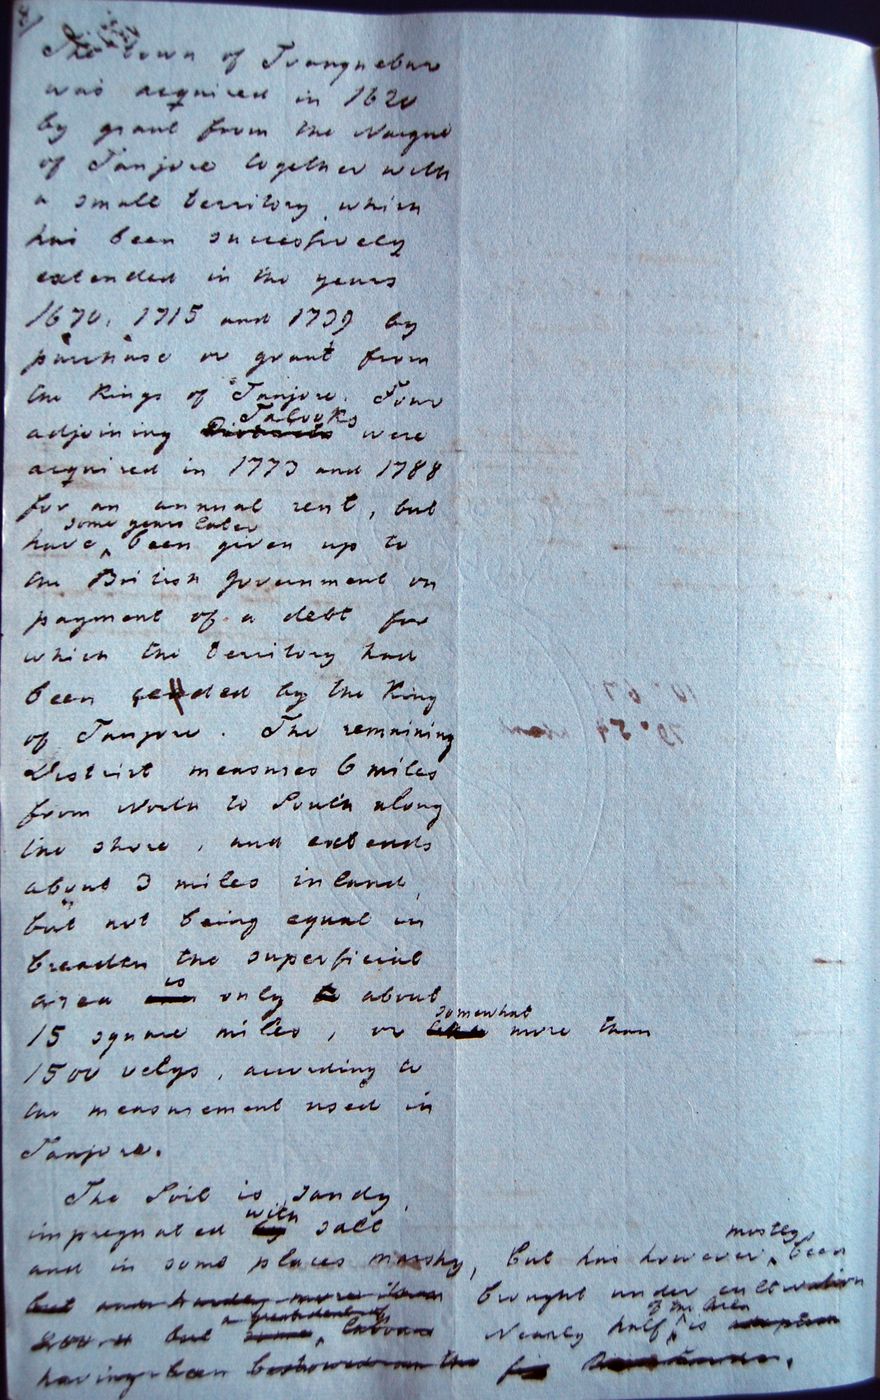 The Town of Tranquebar
was acquired in 1620
by grant from the Naique
of Tanjore together with
a small territory, which
has been successively
extended in the years
1670, 1715 and 1739 by
purchase or grant from
the Kings of Tanjore. Four
Talooks
adjoining Districts were
acquired in 1773 and 1788
for an annual rent, but
some years later
have ‸ been given up to
the British government on
payment of a debt for
which the territory had
been ceded by the King
of Tanjore. The remaining
District measures 6 miles
from North to South along
the shore, and extends
about 3 miles inland,
but not being equal in
breadth the superficial
is
area only about
somewhat
15 square miles, or more than
1500 velys, according to
the measurement used in
Tanjore.
The Soil is sandy,
with
impregnated by salt
mostly
and in some places marshy, but has however ‸ been
but more than brought under cultivation
a great deal of of the Area
but some ‸ labour Nearly half ‸ is
having been bestowed on the
10° 67
79° 54